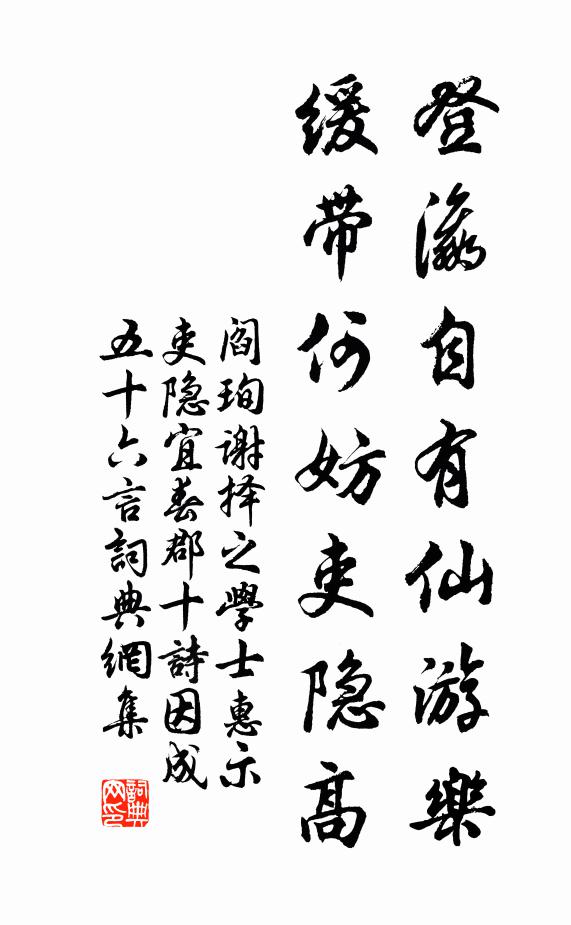 登瀛自有仙游樂
缓带何妨吏隐高
阎珣谢择之學士惠示
吏隐宜春郡十詩因成
五十六言詞典網集
詞典网印